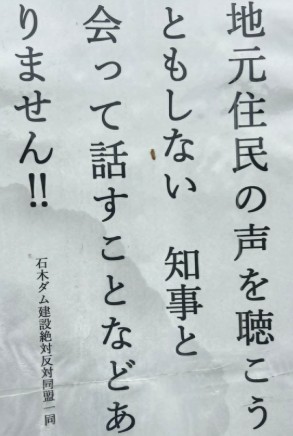 地元住民の声を聴こう
ともしない　知事と
会って話すことなどあ
りません!!
石木ダム建設絶対反対同盟一同